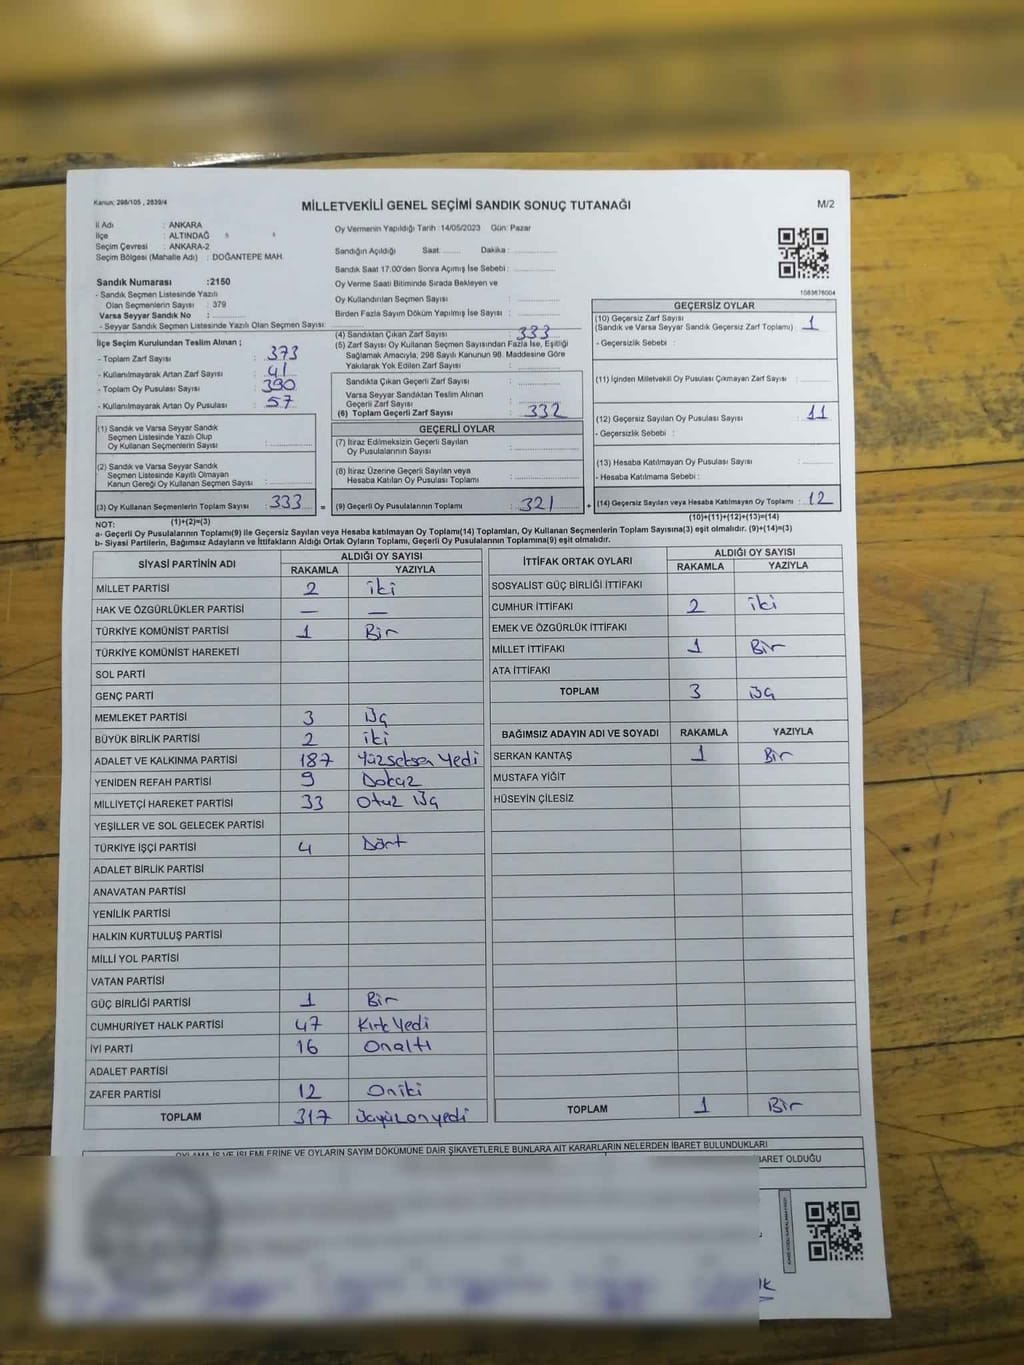 Kanun; 298/105 , 2839/4
MİLLETVEKİLİ GENEL SEÇİMİ SANDIK SONUÇ TUTANAĞI
M/2
İl Adı : ANKARA
İlçe : ALTINDAĞ
Seçim Çevresi : ANKARA-2
Seçim Bölgesi (Mahalle Adı) : DOĞANTEPE MAH.
Sandık Numarası :2150
- Sandık Seçmen Listesinde Yazılı
Olan Seçmenlerin Sayısı : 379
Varsa Seyyar Sandık No :
- Seyyar Sandık Seçmen Listesinde Yazılı Olan Seçmen Sayısı:
İlçe Seçim Kurulundan Teslim Alınan ;
- Toplam Zarf Sayısı : 373
- Kullanılmayarak Artan Zarf Sayısı : 41
- Toplam Oy Pusulası Sayısı : 390
- Kullanılmayarak Artan Oy Pusulası : 57
(1) Sandık ve Varsa Seyyar Sandık
Seçmen Listesinde Yazılı Olup
Oy Kullanan Seçmenlerin Sayısı :
(2) Sandık ve Varsa Seyyar Sandık
Seçmen Listesinde Kayıtlı Olmayan
Kanun Gereği Oy Kullanan Seçmen Sayısı :
(3) Oy Kullanan Seçmenlerin Toplam Sayısı : 333 =
Oy Vermenin Yapıldığı Tarih : 14/05/2023 Gün: Pazar
Sandığın Açıldığı Saat: ....... Dakika: .......
Sandık Saat 17.00'den Sonra Açımış İse Sebebi :
Oy Verme Saati Bitiminde Sırada Bekleyen ve
Oy Kullandırılan Seçmen Sayısı :
Birden Fazla Sayım Döküm Yapılmış İse Sayısı :
(4) Sandıktan Çıkan Zarf Sayısı : 333
(5) Zarf Sayısı Oy Kullanan Seçmen Sayısından Fazla İse, Eşitliği
Sağlamak Amacıyla, 298 Sayılı Kanunun 98. Maddesine Göre
Yakılarak Yok Edilen Zarf Sayısı :
Sandıkta Çıkan Geçerli Zarf Sayısı :
Varsa Seyyar Sandıktan Teslim Alınan
Geçerli Zarf Sayısı :
(6) Toplam Geçerli Zarf Sayısı : 332
GEÇERLİ OYLAR
(7) İtiraz Edilmeksizin Geçerli Sayılan
Oy Pusulasının Sayısı :
(8) İtiraz Üzerine Geçerli Sayılan veya
Hesaba Katılan Oy Pusulası Toplamı :
(9) Geçerli Oy Pusulasının Toplamı : 321 +
1083876004
GEÇERSİZ OYLAR
(10) Geçersiz Zarf Sayısı
(Sandık ve Varsa Seyyar Sandık Geçersiz Zarf Toplamı) : 1
- Geçersizlik Sebebi :
(11) İçinden Milletvekili Oy Pusulası Çıkmayan Zarf Sayısı :
(12) Geçersiz Sayılan Oy Pusulası Sayısı : 11
- Geçersizlik Sebebi :
(13) Hesaba Katılmayan Oy Pusulası Sayısı :
- Hesaba Katılmama Sebebi :
(14) Geçersiz Sayılan veya Hesaba Katılmayan Oy Toplamı : 12
NOT: (1)+(2)=(3) (10)+(11)+(12)+(13)=(14)
a- Geçerli Oy Pusulalarının Toplamı(9) ile Geçersiz Sayılan veya Hesaba katılmayan Oy Toplamı(14) Toplamları, Oy Kullanan Seçmenlerin Toplam Sayısına(3) eşit olmalıdır. (9)+(14)=(3)
b- Siyasi Partilerin, Bağımsız Adayların ve İttifakların Aldığı Ortak Oyların Toplamı, Geçerli Oy Pusulalarının Toplamına(9) eşit olmalıdır.
SİYASİ PARTİNİN ADI ALDIĞI OY SAYISI
RAKAMLA YAZIYLA
MİLLET PARTİSİ 2 iki
HAK VE ÖZGÜRLÜKLER PARTİSİ — —
TÜRKİYE KOMÜNİST PARTİSİ 1 Bir
TÜRKİYE KOMÜNİST HAREKETİ
SOL PARTİ
GENÇ PARTİ
MEMLEKET PARTİSİ 3 Üç
BÜYÜK BİRLİK PARTİSİ 2 iki
ADALET VE KALKINMA PARTİSİ 187 Yüzseksen Yedi
YENİDEN REFAH PARTİSİ 9 Dokuz
MİLLİYETÇİ HAREKET PARTİSİ 33 Otuz Üç
YEŞİLLER VE SOL GELECEK PARTİSİ
TÜRKİYE İŞÇİ PARTİSİ 4 Dört
ADALET BİRLİK PARTİSİ
ANAVATAN PARTİSİ
YENİLİK PARTİSİ
HALKIN KURTULUŞ PARTİSİ
MİLLİ YOL PARTİSİ
VATAN PARTİSİ
GÜÇ BİRLİĞİ PARTİSİ 1 Bir
CUMHURİYET HALK PARTİSİ 47 Kırk Yedi
İYİ PARTİ 16 Onaltı
ADALET PARTİSİ
ZAFER PARTİSİ 12 Oniki
TOPLAM 317 Üçyüzonyedi
İTTİFAK ORTAK OYLARI ALDIĞI OY SAYISI
RAKAMLA YAZIYLA
SOSYALİST GÜÇ BİRLİĞİ İTTİFAKI
CUMHUR İTTİFAKI 2 iki
EMEK VE ÖZGÜRLÜK İTTİFAKI
MİLLET İTTİFAKI 1 Bir
ATA İTTİFAKI
TOPLAM 3 Üç
BAĞIMSIZ ADAYIN ADI VE SOYADI RAKAMLA YAZIYLA
SERKAN KANTAŞ 1 Bir
MUSTAFA YİĞİT
HÜSEYİN ÇİLESİZ
TOPLAM 1 Bir
OYLAMA İŞ VE İŞLEMLERİNE VE OYLARIN SAYIM DÖKÜMÜNE DAİR ŞİKAYETLERLE BUNLARA AİT KARARLARIN NELERDEN İBARET BULUNDUKLARI
BARET OLDUĞU